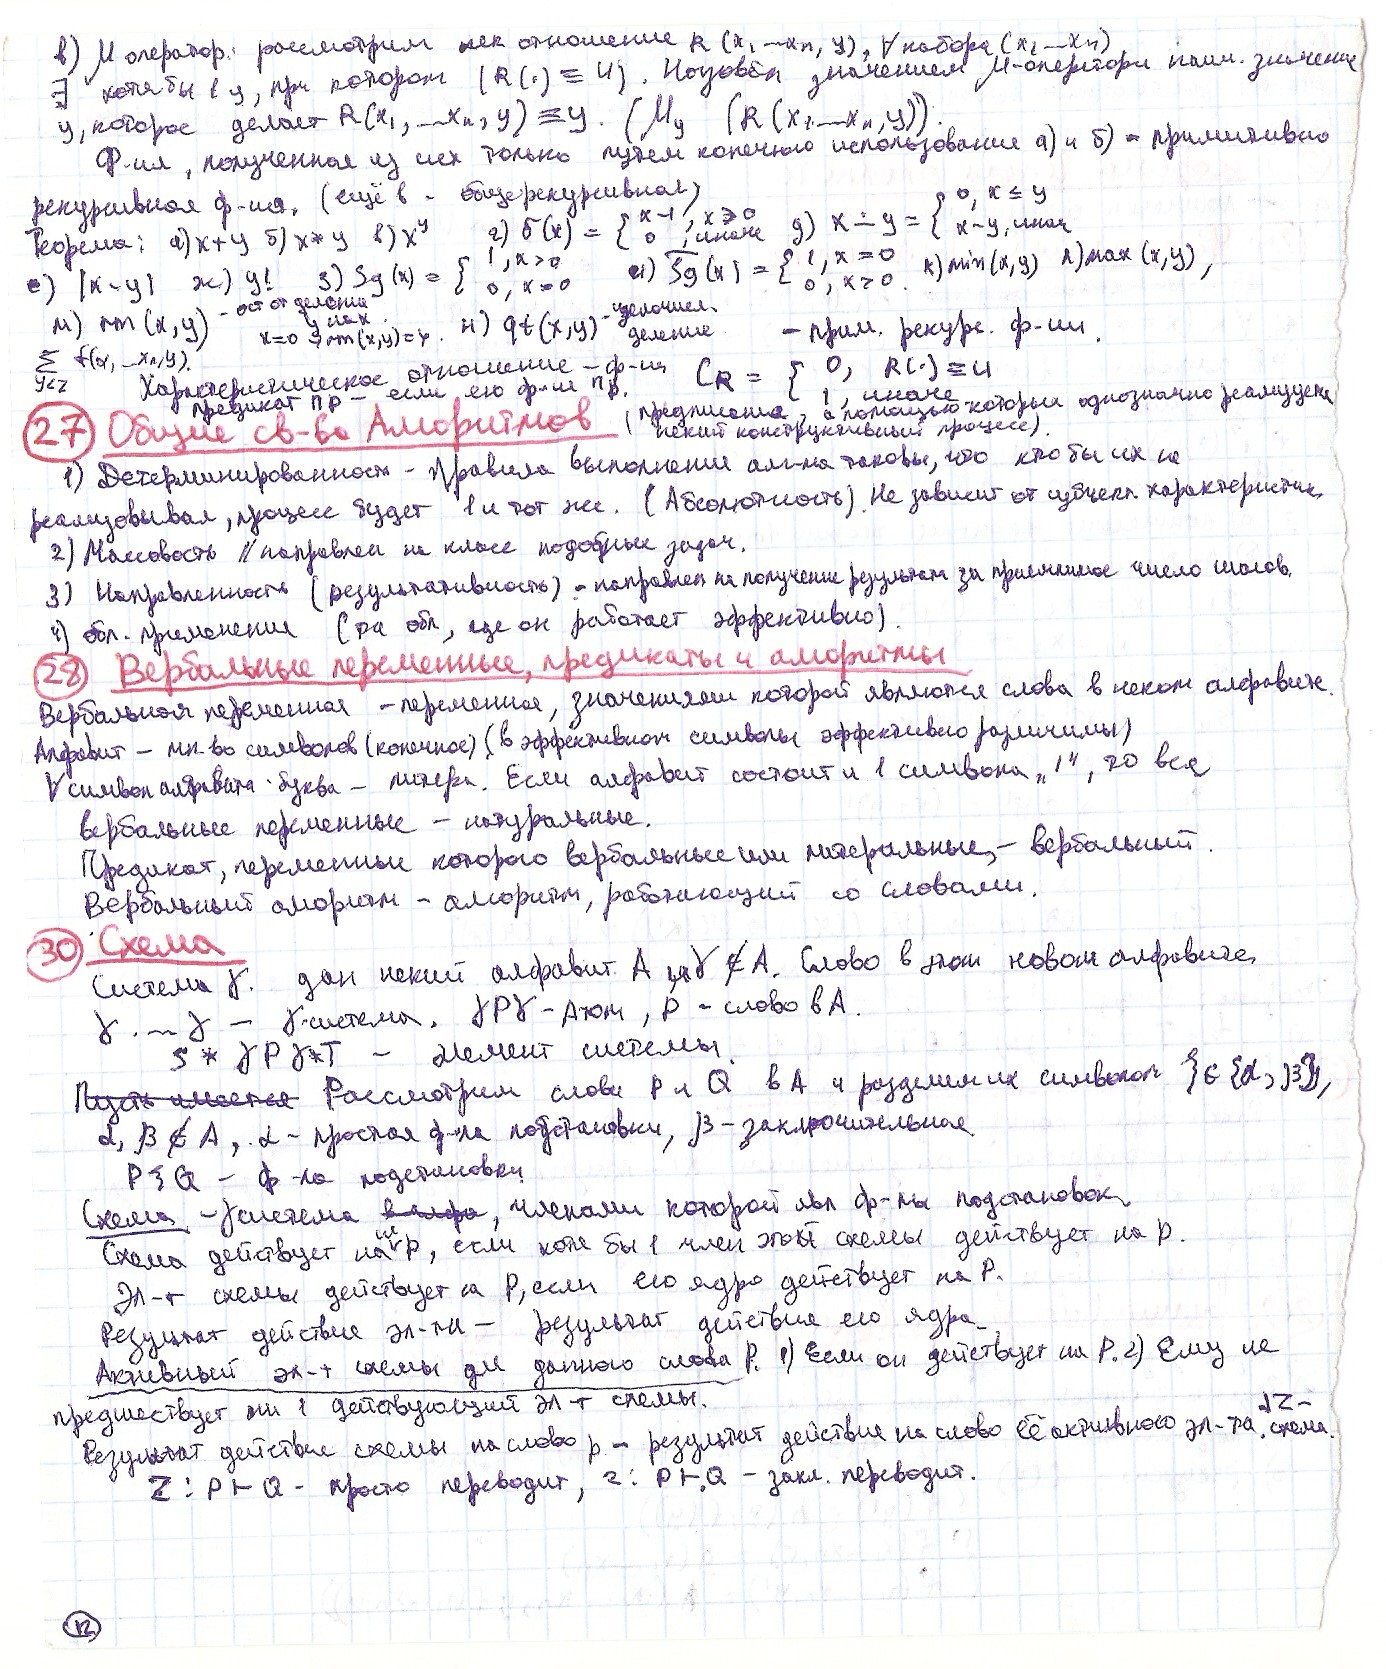 в) М оператор: рассмотрим нек отношение R(x₁...xₙ, y), ∀ набора (x₁...xₙ)
∃ хотя бы 1 y, при котором (R(·) ≡ И). Назовём значением М-оператора наим. значение
y, которое делает R(x₁, ...xₙ, y) ≡ y. (My (R(x₁...xₙ, y)).
Ф-ия, полученная из них только путем конечного использования а) и б) - примитивно
рекурсивная ф-ия. (ещё в - общерекурсивная)
Теорема: а) x+y б) x*y в) x^y г) δ(x) = { x-1, x>0 0, иначе д) x ∸ y = { 0, x ≤ y x-y, иначе
е) |x-y| ж) y! з) Sg(x) = { 1, x>0 0, x=0 и) S̅g(x) = { 1, x=0 0, x>0. к) min(x,y) л) max(x,y),
м) rm(x,y) - ост от деления y на x. x=0 rm(x,y)=y. н) qt(x,y) - целочисл. деление - прим. рекурс. ф-ии.
∑ y<z f(x₁, ...xₙ, y).
Характеристическое отношение - ф-ия C_R = { 0, R(·) ≡ И 1, иначе
предикат ПР - если его ф-ия ПР.
27 Общие св-ва Алгоритмов (предписания, с помощью которых однозначно реализуем
некий конструктивный процесс).
1) Детерминированность - правила выполнения алг-ма таковы, что кто бы их не
реализовывал, процесс будет 1 и тот же. (Абсолютность). Не зависит от субъект. характеристик
2) Массовость // направлен на класс подобных задач.
3) Направленность (результативность) - направлен на получение результата за приемлимое число шагов.
4) обл. применения (та обл, где он работает эффективно).
28 Вербальные переменные, предикаты и алгоритмы
Вербальная переменная - переменная, значениями которой являются слова в неком алфавите.
Алфавит - мн-во символов (конечное) (в эффективном символы эффективно различимы)
∀ символ алфавита - буква - литера. Если алфавит состоит и 1 символа „1", то все
вербальные переменные - натуральные.
Предикат, переменные которого вербальные или натуральные, - вербальный.
Вербальный алгоритм - алгоритм, работающий со словами.
30 Схема
Система γ. дан некий алфавит A γ ∉ A. Слово в этом новом алфавите,
γ ... γ - γ-система. γPγ - Атом, P - слово в A.
S * γPγ * T - элемент системы.
Пусть имеется Рассмотрим слова P и Q в A и разделим их символом ξ ∈ {α, β},
α, β ∉ A, α - простая ф-ла подстановки, β - заключительная
PξQ - ф-ла подстановки
Схема - γсистема в алфа, членами которой явл ф-лы подстановок
Схема действует на P, если хотя бы 1 член этой схемы действует на P.
Эл-т схемы действует на P, если его ядро действует на P.
Результат действие эл-та - результат действие его ядра
Активный эл-т схемы для данного слова P. 1) Если он действует на P. 2) Ему не
предшествует ни 1 действующий эл-т схемы.
Результат действие схемы на слово p - результат действие на слово её активного эл-та. Z - схема.
Z: P ⊢ Q - просто переводит, z: P ⊢. Q - закл. переводит.
12